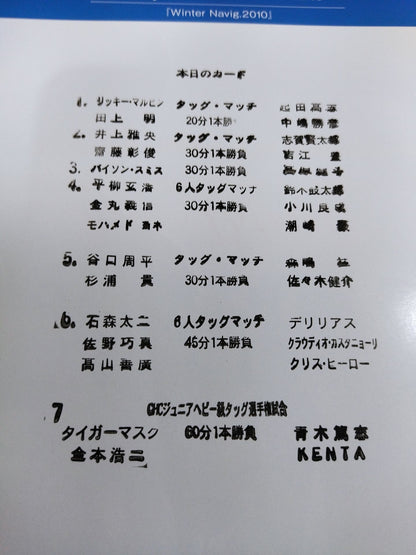 『Winter Navig.2010』
本日のカード
1. リッキー・マルビン タッグ・マッチ 起田高志
田上 明 20分1本勝 中嶋勝彦
2. 井上雅央 タッグ・マッチ 志賀賢太郎
齋藤彰俊 30分1本勝負 百江 豊
3. バイソン・スミス 30分1本勝負
4. 平柳玄藩 6人タッグマッチ 鈴木鼓太郎
金丸義信 30分1本勝負 小川良成
モハメド ヨネ 潮崎 豪
5. 谷口周平 タッグ・マッチ 森嶋 猛
杉浦 貴 30分1本勝負 佐々木健介
6. 石森太二 6人タッグマッチ デリリアス
佐野巧真 45分1本勝負 クラウディオ・カスタニョーリ
高山善廣 クリス・ヒーロー
7 GHCジュニアヘビー級タッグ選手権試合
タイガーマスク 60分1本勝負 青木篤志
金本浩二 KENTA